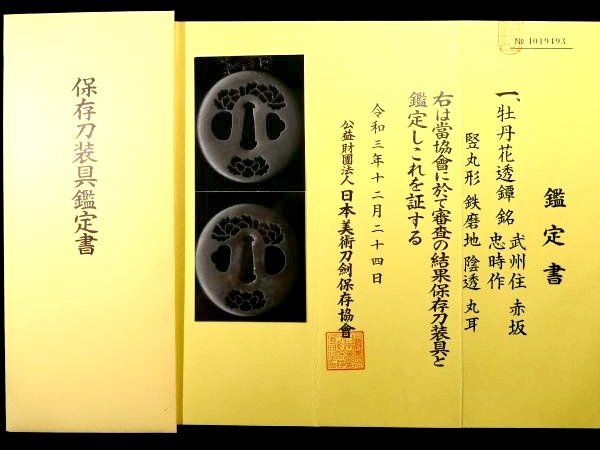 保存刀装具鑑定書
№ 1019493
鑑定書
一、牡丹花透鐔 銘 武州住 赤坂
忠時作
竪丸形 鉄磨地 陰透 丸耳
右は當協會に於て審査の結果保存刀装具と
鑑定しこれを証する
令和三年十二月二十四日
公益財團法人 日本美術刀劍保存協會